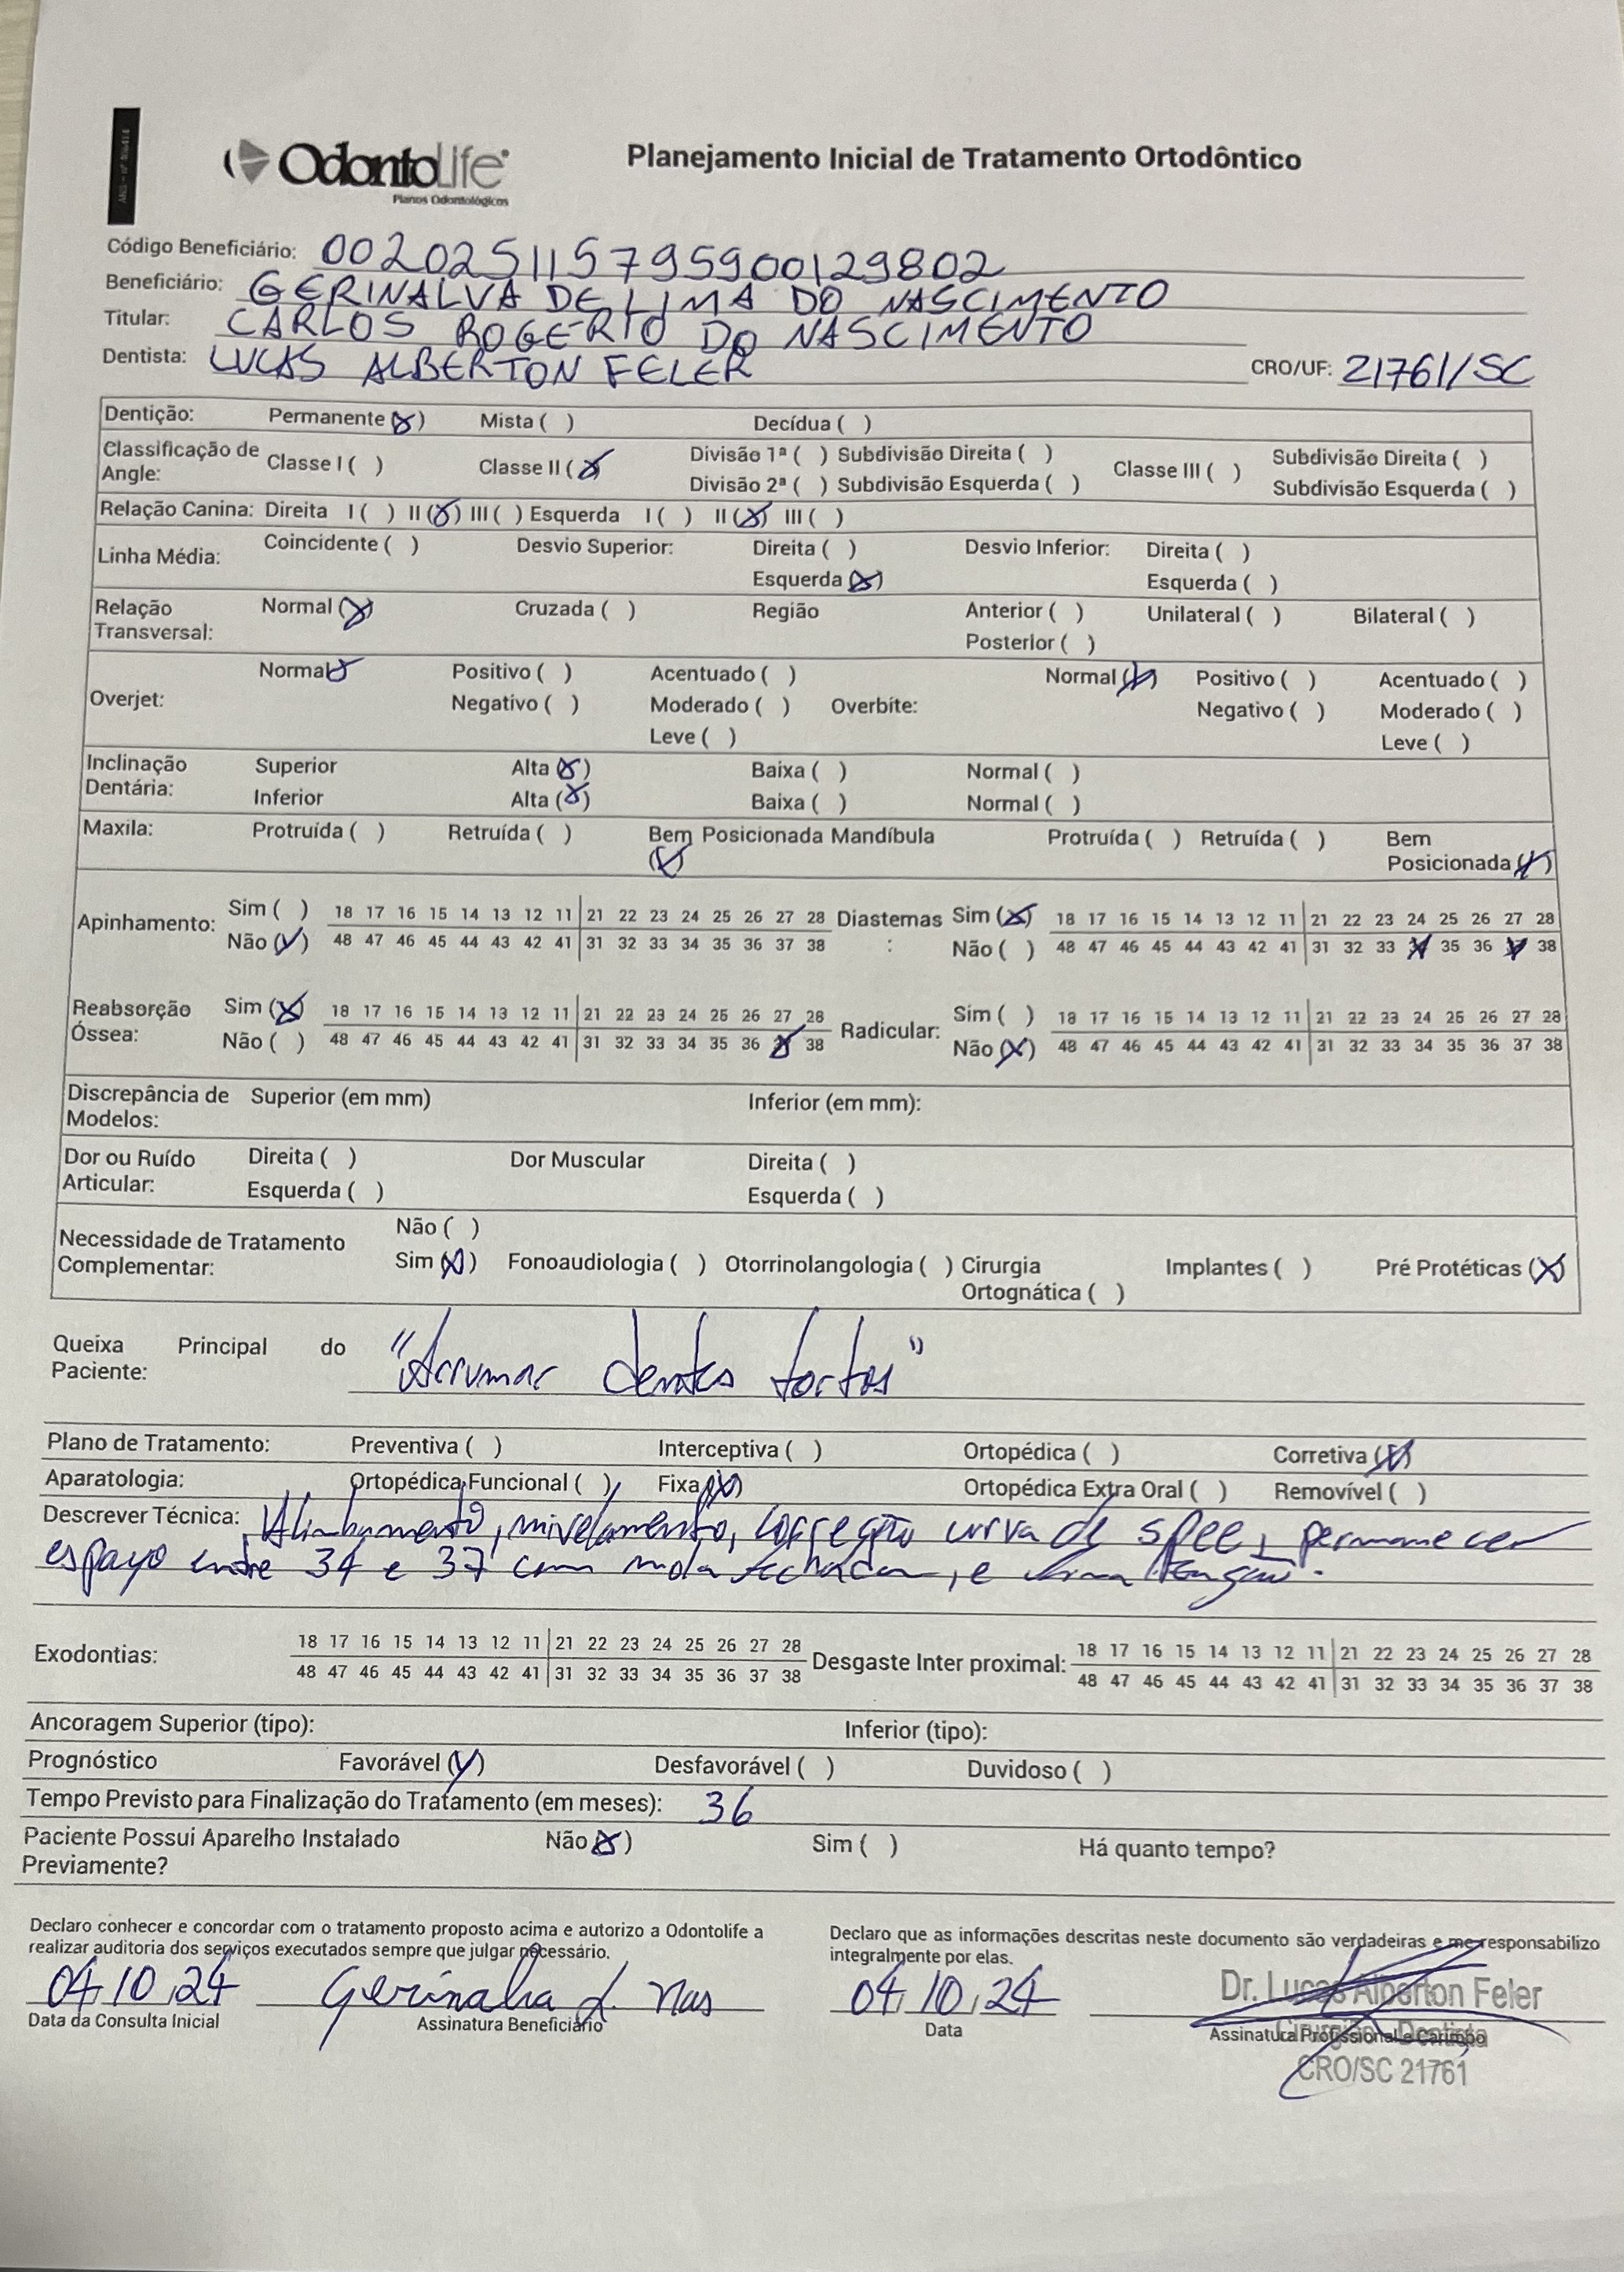 ANS - nº
OdontoLife
Planos Odontológicos
Planejamento Inicial de Tratamento Ortodôntico
Código Beneficiário: 002025115795900129802
Beneficiário: GERINALVA DE LIMA DO NASCIMENTO
Titular: CARLOS ROGERIO DO NASCIMENTO
Dentista: LUCAS ALBERTON FELER CRO/UF: 21761/SC
Dentição: Permanente (X) Mista ( ) Decídua ( )
Classificação de Angle: Classe I ( ) Classe II (X) Divisão 1ª ( ) Subdivisão Direita ( ) Classe III ( ) Subdivisão Direita ( )
Divisão 2ª ( ) Subdivisão Esquerda ( ) Subdivisão Esquerda ( )
Relação Canina: Direita I ( ) II (X) III ( ) Esquerda I ( ) II (X) III ( )
Linha Média: Coincidente ( ) Desvio Superior: Direita ( ) Desvio Inferior: Direita ( )
Esquerda (X) Esquerda ( )
Relação Transversal: Normal (X) Cruzada ( ) Região Anterior ( ) Unilateral ( ) Bilateral ( )
Posterior ( )
Overjet: Normal (X) Positivo ( ) Acentuado ( ) Overbite: Normal (X) Positivo ( ) Acentuado ( )
Negativo ( ) Moderado ( ) Negativo ( ) Moderado ( )
Leve ( ) Leve ( )
Inclinação Dentária: Superior Alta (X) Baixa ( ) Normal ( )
Inferior Alta (X) Baixa ( ) Normal ( )
Maxila: Protruída ( ) Retruída ( ) Bem Posicionada (X) Mandíbula Protruída ( ) Retruída ( ) Bem
Posicionada (X)
Apinhamento: Sim ( ) 18 17 16 15 14 13 12 11 21 22 23 24 25 26 27 28 Diastemas: Sim (X) 18 17 16 15 14 13 12 11 21 22 23 24 25 26 27 28
Não (X) 48 47 46 45 44 43 42 41 31 32 33 34 35 36 37 38 Não ( ) 48 47 46 45 44 43 42 41 31 32 33 34 35 36 37 38
Reabsorção Óssea: Sim (X) 18 17 16 15 14 13 12 11 21 22 23 24 25 26 27 28 Radicular: Sim ( ) 18 17 16 15 14 13 12 11 21 22 23 24 25 26 27 28
Não ( ) 48 47 46 45 44 43 42 41 31 32 33 34 35 36 37 38 Não (X) 48 47 46 45 44 43 42 41 31 32 33 34 35 36 37 38
Discrepância de Modelos: Superior (em mm) Inferior (em mm):
Dor ou Ruído Articular: Direita ( ) Dor Muscular Direita ( )
Esquerda ( ) Esquerda ( )
Necessidade de Tratamento Complementar: Não ( )
Sim (X) Fonoaudiologia ( ) Otorrinolangologia ( ) Cirurgia Ortognática ( ) Implantes ( ) Pré Protéticas (X)
Queixa Principal do Paciente: "Arrumar dentes tortos"
Plano de Tratamento: Preventiva ( ) Interceptiva ( ) Ortopédica ( ) Corretiva (X)
Aparatologia: Ortopédica Funcional ( ) Fixa (X) Ortopédica Extra Oral ( ) Removível ( )
Descrever Técnica: Alinhamento, nivelamento, correção curva de spee, permanecer
espaço entre 34 e 37 com mola fechada, e
Exodontias: 18 17 16 15 14 13 12 11 21 22 23 24 25 26 27 28 Desgaste Inter proximal: 18 17 16 15 14 13 12 11 21 22 23 24 25 26 27 28
48 47 46 45 44 43 42 41 31 32 33 34 35 36 37 38 48 47 46 45 44 43 42 41 31 32 33 34 35 36 37 38
Ancoragem Superior (tipo): Inferior (tipo):
Prognóstico Favorável (X) Desfavorável ( ) Duvidoso ( )
Tempo Previsto para Finalização do Tratamento (em meses): 36
Paciente Possui Aparelho Instalado Previamente? Não (X) Sim ( ) Há quanto tempo?
Declaro conhecer e concordar com o tratamento proposto acima e autorizo a Odontolife a
realizar auditoria dos serviços executados sempre que julgar necessário.
Declaro que as informações descritas neste documento são verdadeiras e me responsabilizo
integralmente por elas.
04/10/24 Gerinalva d. Nas 04/10/24 Dr. Lucas Alberton Feler
Data da Consulta Inicial Assinatura Beneficiário Data Assinatura Profissional e Carimbo
Cirurgião - Dentista
CRO/SC 21761